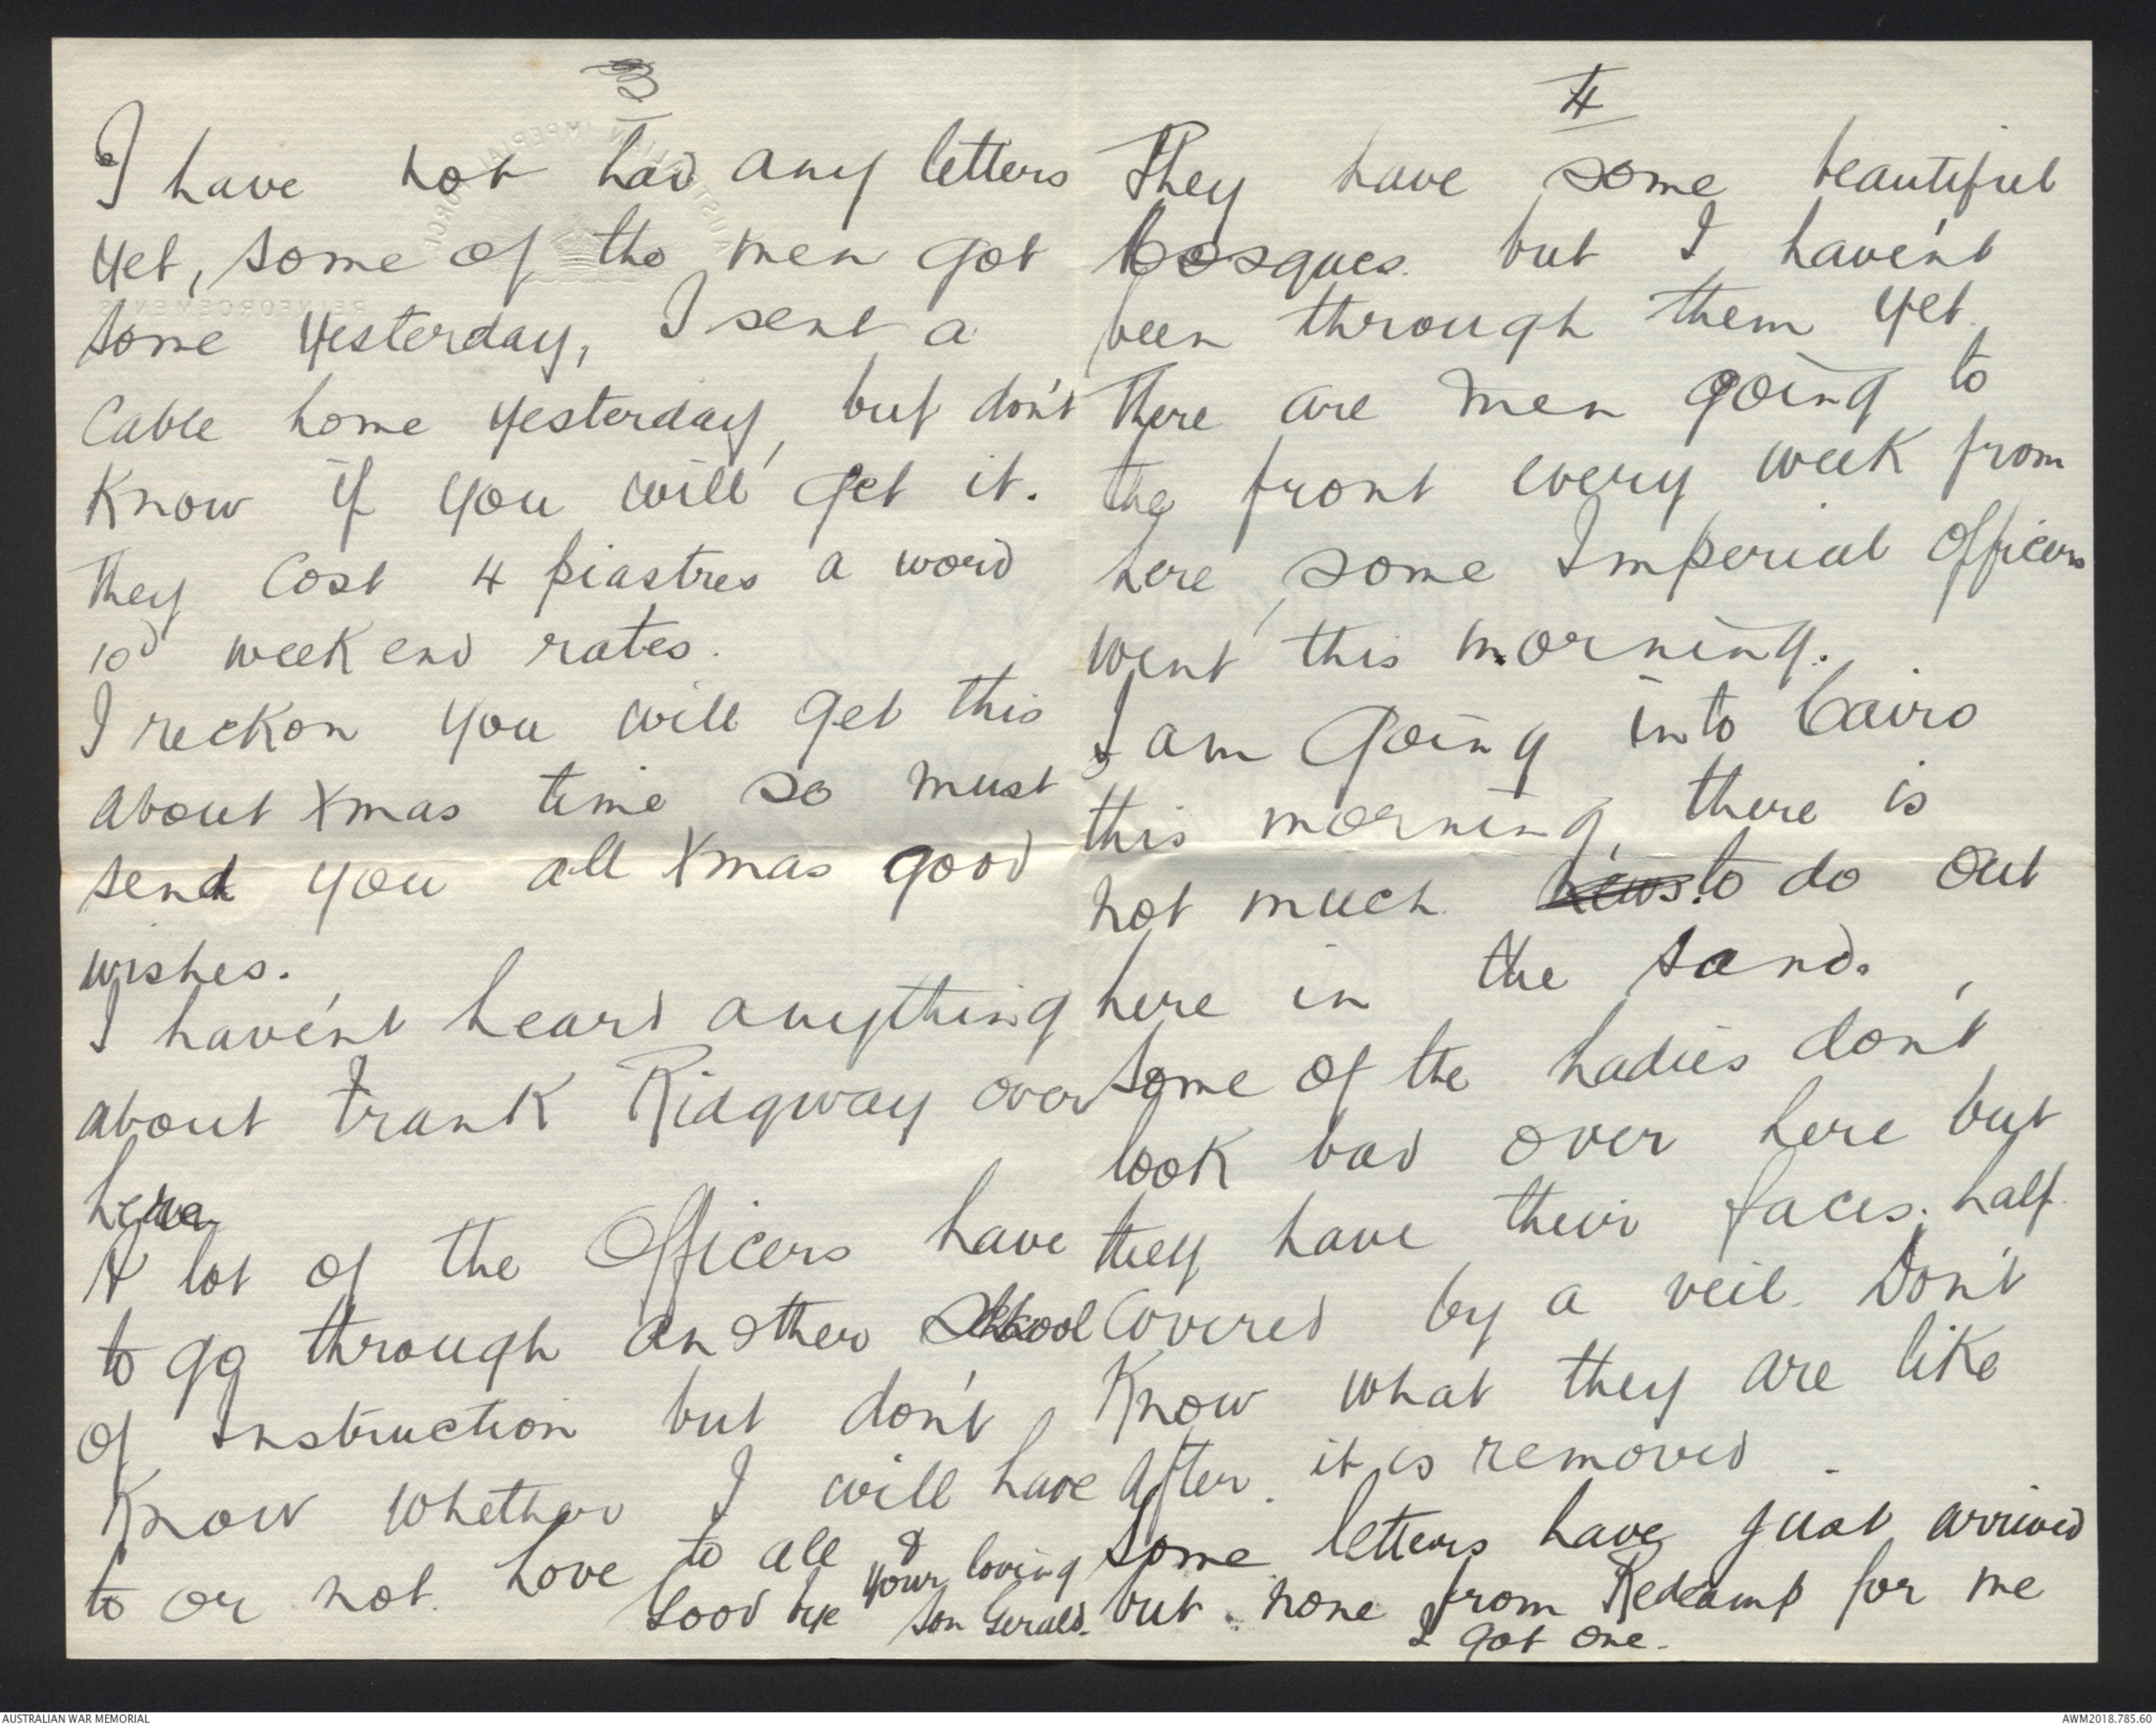 3
I have not had any letters
yet, some of the men got
some yesterday, I sent a
Cable home yesterday, but don't
know if you will get it.
They Cost 4 piastres a word
10d week end rates.
I reckon you will get this
about Xmas time so must
send you all Xmas good
wishes.
I haven't heard anything
about Frank Ridgway over
here
A lot of the Officers have
to go through another School
of Instruction but don't
know whether I will have
to or not. Love to all &
Good bye your loving
son Gerald.
4
They have some beautiful
bosques. but I haven't
been through them yet.
There are men going to
the front every week from
here, some Imperial Officers
went this morning.
I am going into Cairo
this morning, there is
not much news. to do out
here in the sand.
Some of the Ladies don't
look bad over here but
they have their faces, half
covered by a veil. Don't
know what they are like
after it is removed.
Some letters have just arrived
but none from Redcamp for me
I got one.
AUSTRALIAN IMPERIAL FORCE
REINFORCEMENTS
AUSTRALIAN WAR MEMORIAL
AWM2018.785.60